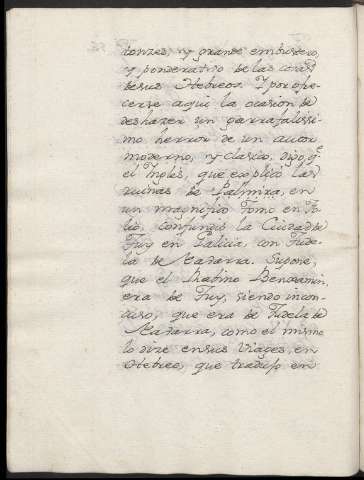 tonzes, y grande embustero,
y ponderativo de las cosas
de sus Hebreos. Y por ofre-
cerse aqui la ocasion de
deshazer un garrafalissi-
mo herror de un autor
moderno, y clasico, digo, q.e
el Ingles, que explico las
ruinas de Palmira, en
un magnifico Tomo en fo-
lio, confundio la Ciudad de
Tuy en Galicia, con Tude-
la de Nabarra. Supone,
que el Rabino Benjamin,
era de Tuy, siendo incon-
cuso, que era de Tudela de
Nabarra, como el mismo
lo dize en sus Viages, en
Hebreo, que traduso en